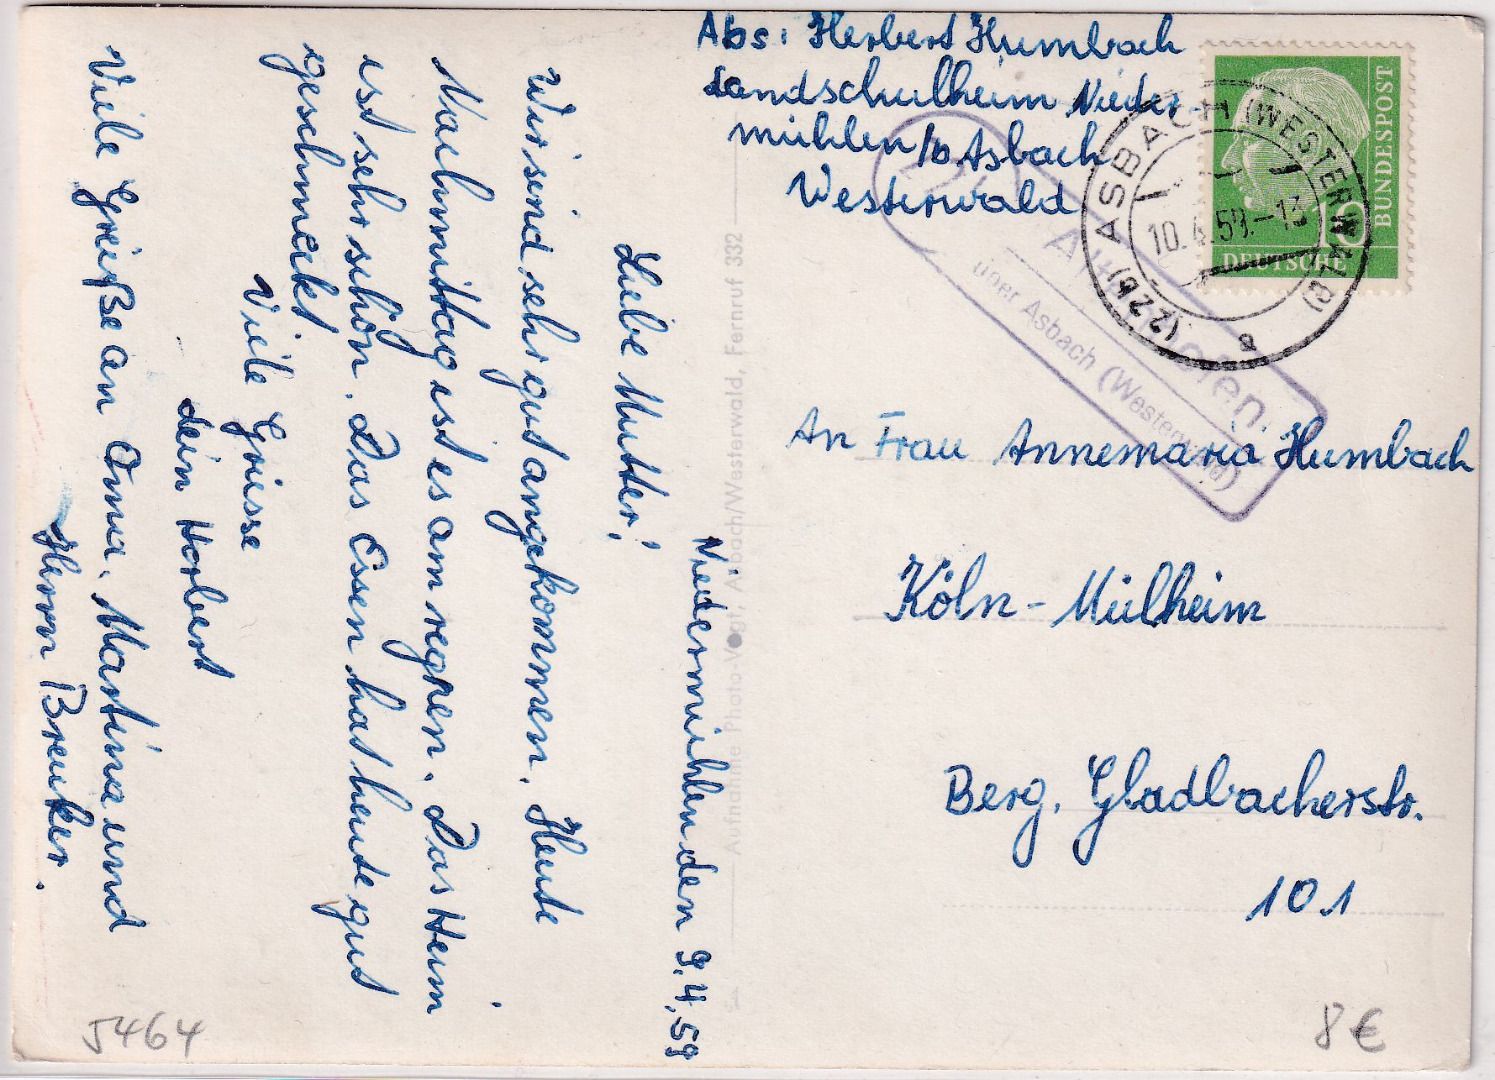 Abs: Herbert Humbach
Landschulheim Nieder-
mühlen /b. Asbach
Westerwald
DEUTSCHE
BUNDESPOST
10
(22b) ASBACH (WESTERWALD)
10.4.59.-13
a
über Asbach (Westerwald)
An Frau Annemaria Humbach
Köln-Mülheim
Berg. Gladbacherstr.
101
Aufnahme Photo-Vogt, Asbach/Westerwald, Fernruf 332
Niedermühlen den 9.4.59
Liebe Mutter!
Wir sind sehr gut angekommen. Heute
Nachmittag ist es am regnen. Das Heim
ist sehr schön. Das Essen hat heute gut
geschmeckt.
Viele Grüsse
dein Herbert
Viele Grüße an Oma, Martina und
Herrn Breuker.
5464
8€